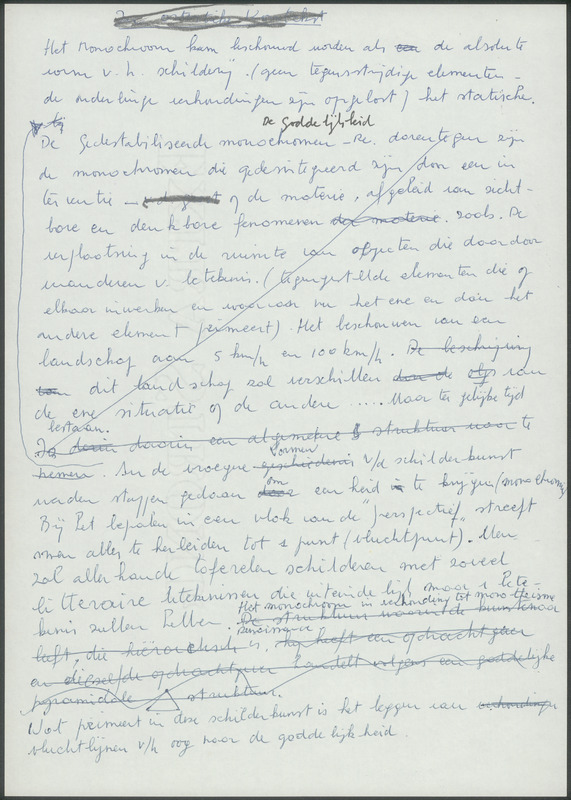 Het Monochroom kan beschouwd worden als een de absolute
vorm v.h. schilderij. (geen tegenstrijdige elementen -
de onderlinge verhoudingen zijn opgelost) het statische.
De goddelijkheid
De Gedestabiliseerde monochromen - daarentegen zijn
de monochromen die gedesintegreerd zijn door een in
terventie of de materie, afgeleid van zicht-
bare en denkbare fenomenen der materie. zoals. De
verplaatsing in de ruimte van objecten die daardoor
veranderen v. betekenis. (tegengestelde elementen die op
elkaar inwerken en waarvan nu het ene en dan het
andere element primeert). Het beschouwen van een
landschap aan 5 km/h en 100 km/h. De beschrijving
van dit landschap zal verschillen van
de ene situatie of de andere ..... Maar ter gelijke tijd
bestaan.
daarin een algemene struktuur waar te
nemen. In de vroegere geschiedenis v/d schilderkunst
vormen
worden stappen gedaan om eenheid te krijgen (monochromie)
Bij het bepalen in een vlak van de "perspectief" streeft
men alles te herleiden tot 1 punt (vluchtpunt). Men
zal allerhande taferelen schilderen met zoveel
litteraire betekenissen die uiteindelijk maar 1 bete-
kenis zullen hebben. Het monochroom in verhouding tot monotheisme
De struktuur
die hiërarchisch is, heeft een opdrachtgever
en diezelfde opdrachtgever handelt volgens een goddelijke
pyramidale struktuur.
Wat primeert in deze schilderkunst is het leggen van verhoudingen
vluchtlijnen v/h oog naar de goddelijkheid.